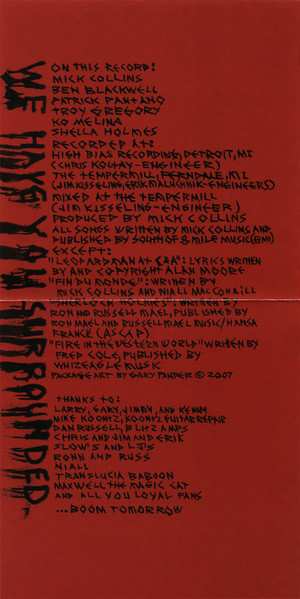 WE HAVE YOU SURROUNDED
ON THIS RECORD:
MICK COLLINS
BEN BLACKWELL
PATRICK PANTANO
TROY GREGORY
KO MELINA
SHELLA HOLMES
RECORDED AT:
HIGH BIAS RECORDING, DETROIT, MI
(CHRIS KOLTAY-ENGINEER)
THE TEMPERMILL, FERNDALE, MI
(JIM KISSLING, ERIK MALUCHNIK-ENGINEERS)
MIXED AT THE TEMPERMILL
(JIM KISSELING-ENGINEER)
PRODUCED BY MICK COLLINS
ALL SONGS WRITTEN BY MICK COLLINS AND
PUBLISHED BY SOUTH OF 8 MILE MUSIC (BMI)
EXCEPT:
"LEOPARDMAN AT C&A": LYRICS WRITTEN
BY AND COPYRIGHT ALAN MOORE
"FIN DU MONDE": WRITTEN BY
MICK COLLINS AND NIALL
"SHERLOCK HOLMES": WRITTEN BY
RON AND RUSSELL MAEL, PUBLISHED BY
RON MAEL AND RUSSELL MAEL MUSIC/HANSA
FRANCE (ASCAP)
"FIRE IN THE WESTERN WORLD" WRITTEN BY
FRED COLE, PUBLISHED BY
WHIZEAGLE MUSIC
PACKAGE ART BY GARY PANTER © 2007
THANKS TO:
LARRY, GARY, JIMBY, AND KENNY
MIKE KOONTZ, KOONTZ GUITAR REPAIR
DAN RUSSELL, BLITZ AMPS
CHRIS AND JIM AND ERIK
SLOW'S AND LJ'S
RONN AND RUSS
NIALL
TRANSLUCIA BABOON
MAXWELL THE MAGIC CAT
AND ALL YOU LOYAL FANS
...BOOM TOMORROW